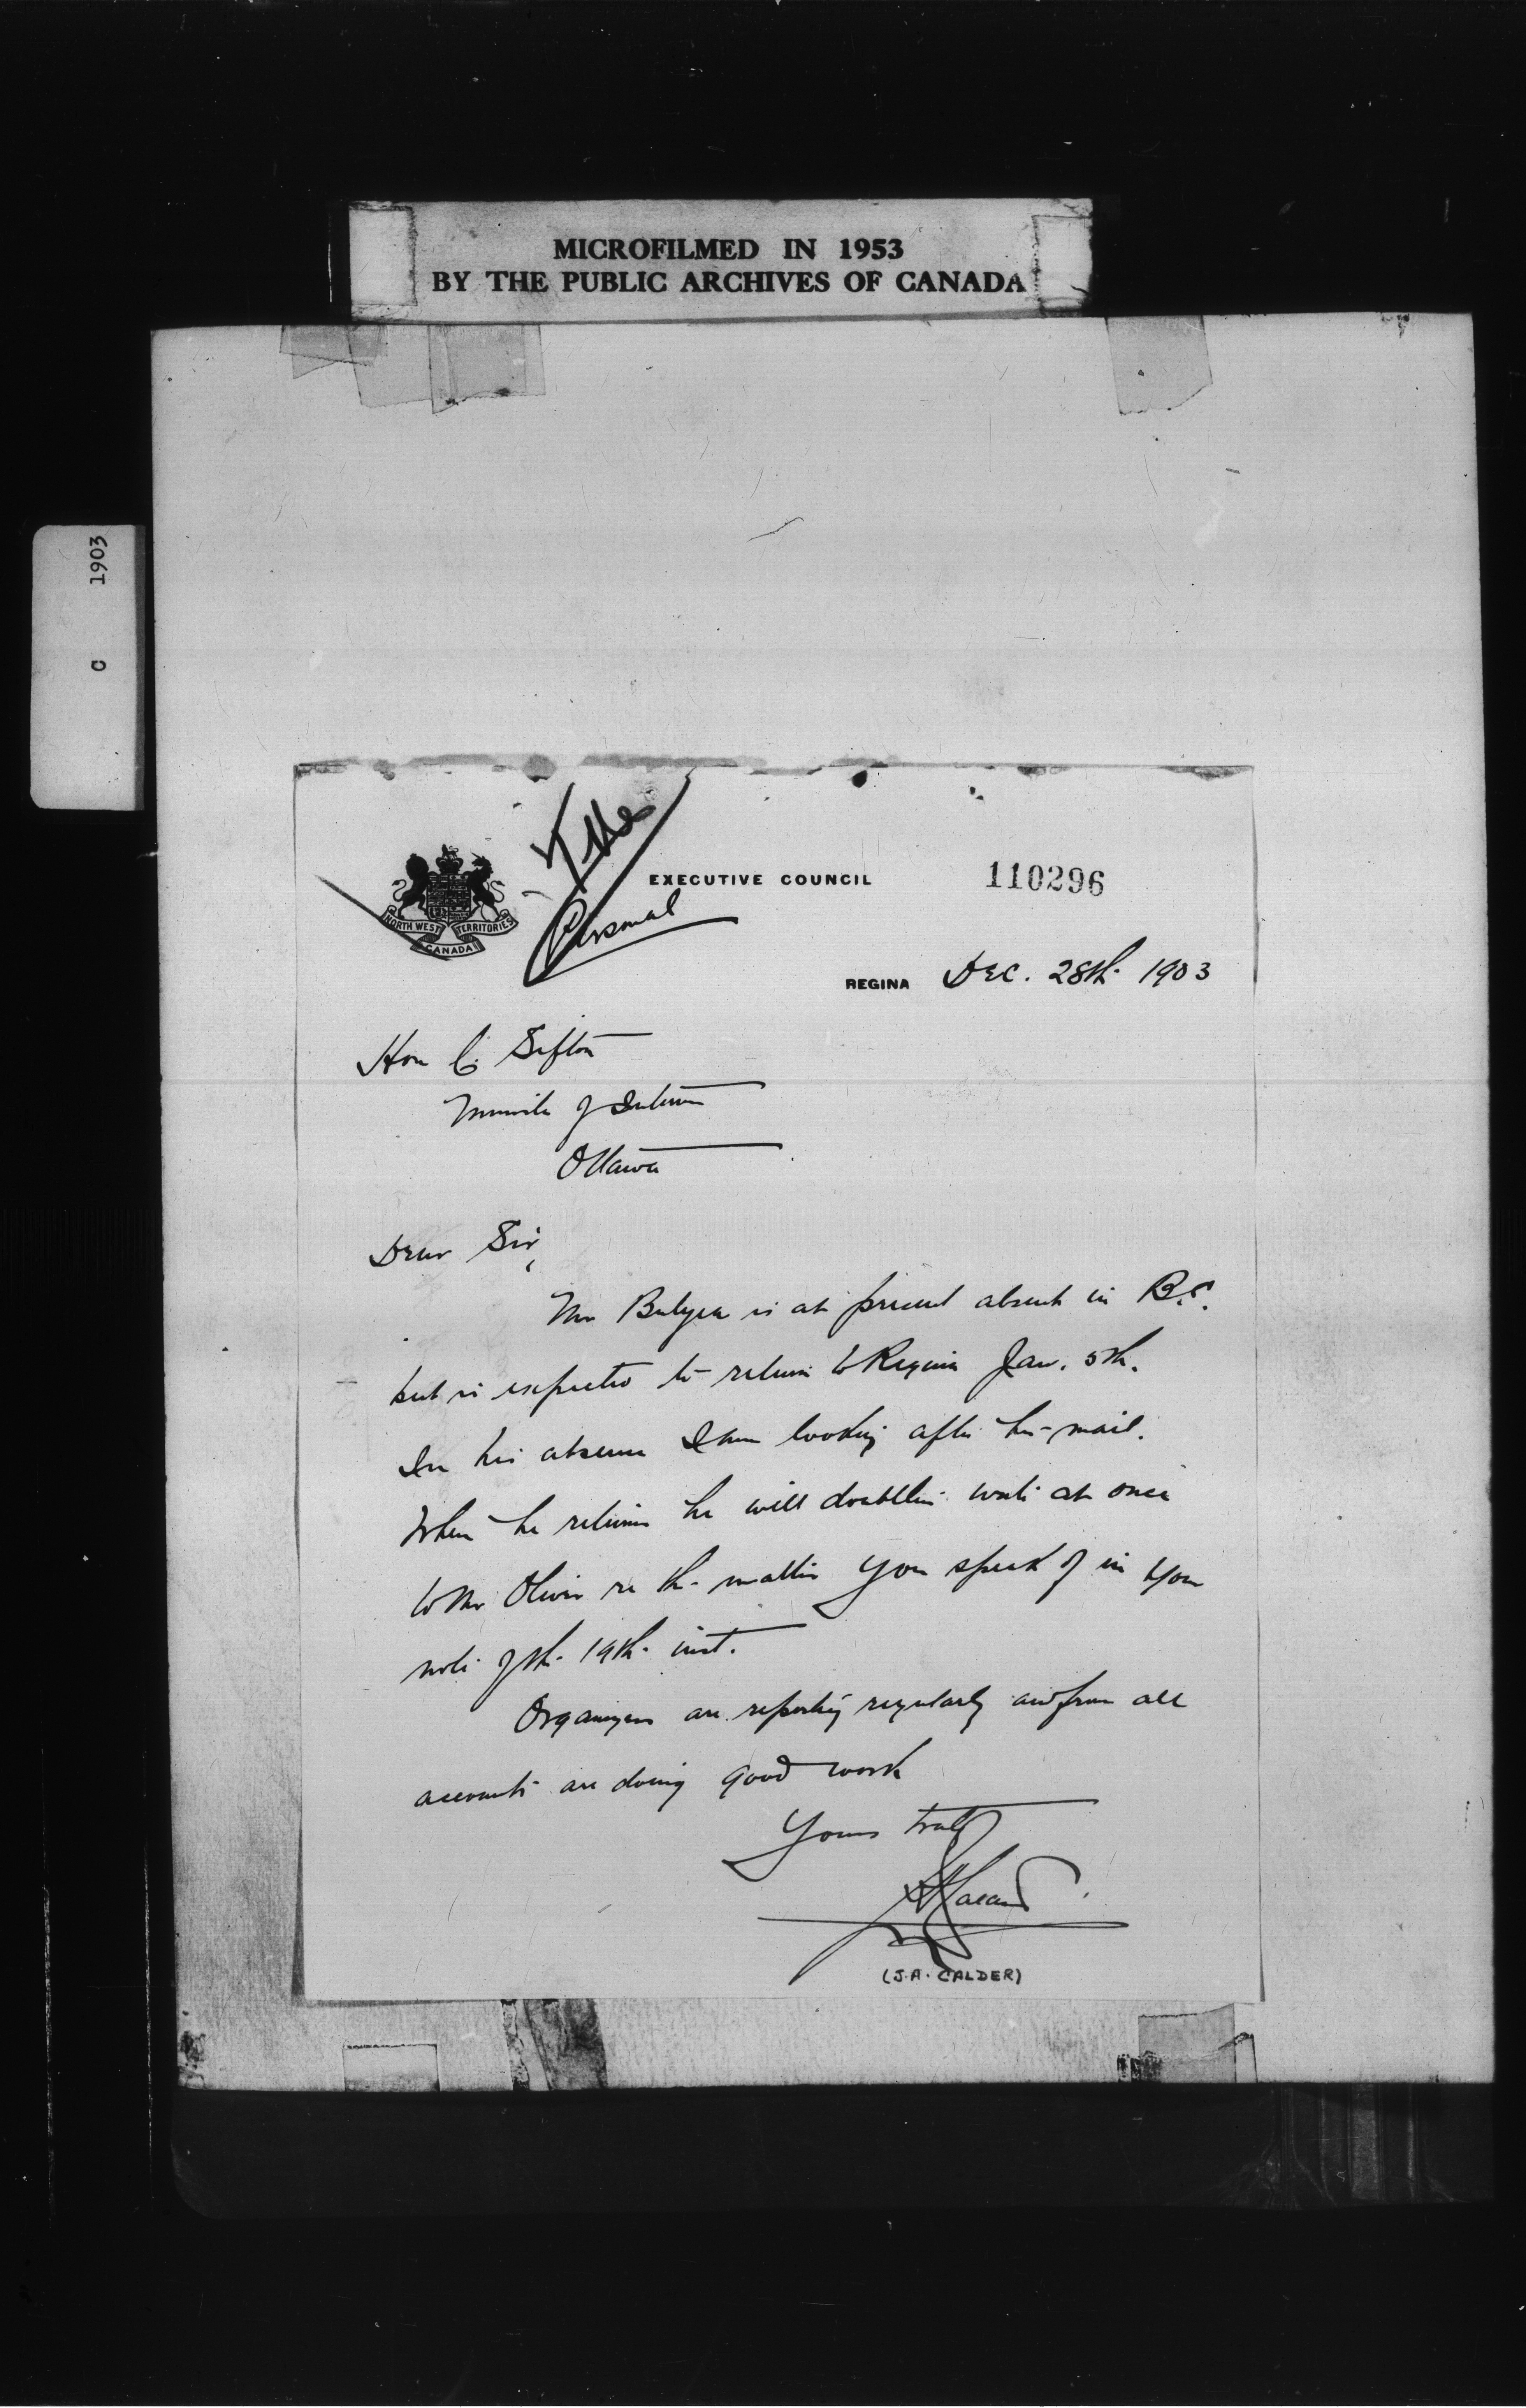 MICROFILMED IN 1953
BY THE PUBLIC ARCHIVES OF CANADA
C 1903
NORTH WEST TERRITORIES
CANADA
EXECUTIVE COUNCIL
110296
Personal
REGINA Dec. 28th. 1903
Hon C. Sifton
Minister of Interior
Ottawa
Dear Sir,
Mr Bulyea is at present absent in B.C.
but is expected to return to Regina Jan. 5th.
In his absence I am looking after his mail.
When he returns he will doubtless write at once
to Mr Oliver re the matter you speak of in your
note of the 19th inst.
Organizers are reporting regularly and from all
accounts are doing good work
Yours truly
JACalder
(J.A. CALDER)